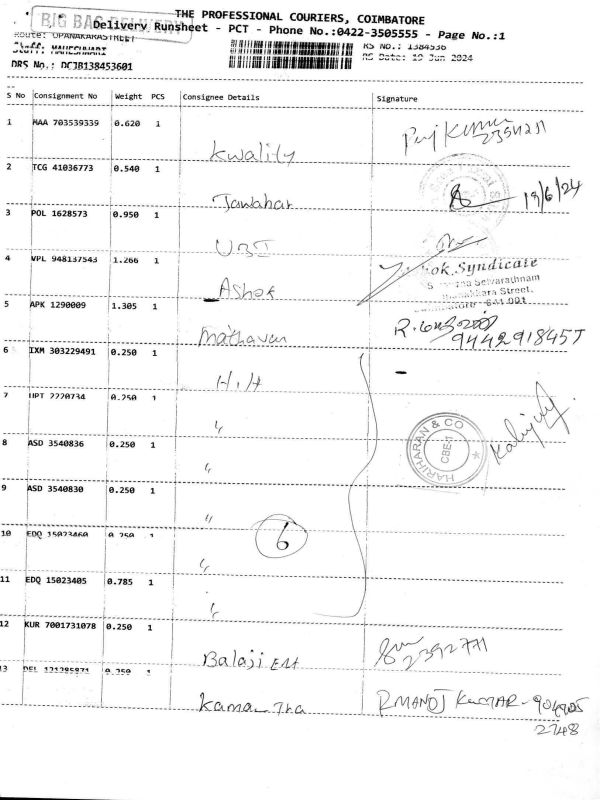 THE PROFESSIONAL COURIERS, COIMBATORE
BIG BAG DELIVERY
Delivery Runsheet - PCT - Phone No.:0422-3505555 - Page No.:1
Route: OPANAKARASTREET
RS No.: 1384536
Staff: MAHESHWARI
RS Date: 19 Jun 2024
DRS No.: DCJB138453601
S No Consignment No Weight PCS Consignee Details Signature
1 MAA 703539339 0.620 1
Kwality
2 TCG 41036773 0.540 1
Jawahar 19/6/24
3 POL 1628573 0.950 1
UBI
4 VPL 948137543 1.266 1
Ashok
Ashok Syndicate
Selvarathnam
Street.
5 APK 1290009 1.305 1
Mathavan R.
6 IXM 303229491 0.250 1
H.H
7 UPT 2220734 0.250 1
"
HARIHARAN & CO
CBE-1
8 ASD 3540836 0.250 1
"
9 ASD 3540830 0.250 1
"
6
10 EDQ 15023460 0.250 1
"
11 EDQ 15023405 0.785 1
"
12 KUR 7001731078 0.250 1
Balaji Ent 2392771
13 DEL 0.250 1
R MANOJ KUMAR -
2748